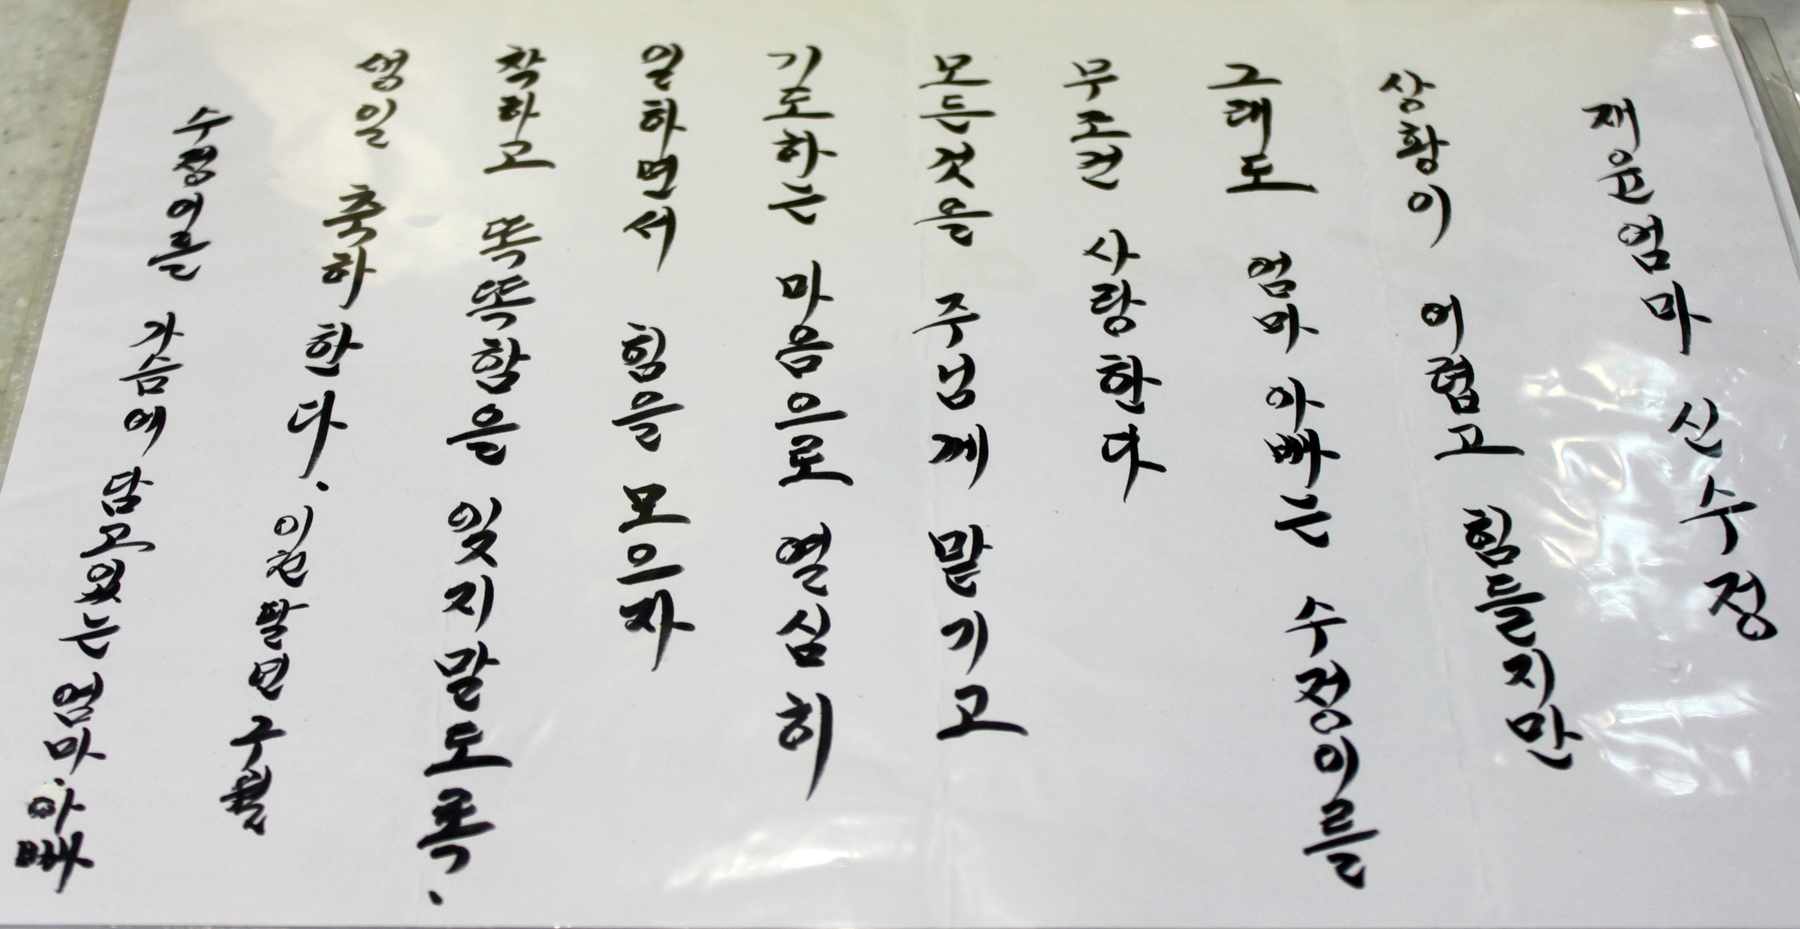 재윤엄마 신수정
상황이 어렵고 힘들지만
그래도 엄마 아빠는 수정이를
무조건 사랑한다
모든것을 주님께 맡기고
기도하는 마음으로 열심히
일하면서 힘을 모으자
착하고 똑똑함을 잊지말도록.
생일 축하한다. 이천팔년구월
수정이를 가슴에 담고있는 엄마.아빠